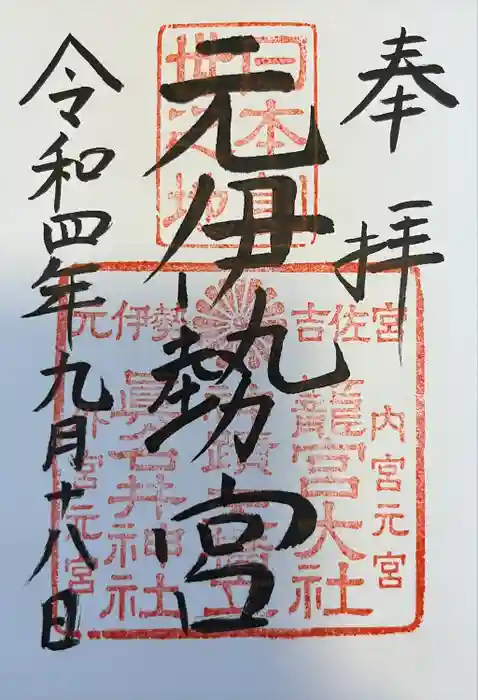 奉拝
日本創
世之地
元伊勢宮
元伊勢
吉佐宮
内宮元宮
籠宮大社
眞名井神社
外宮元宮
令和四年九月十八日